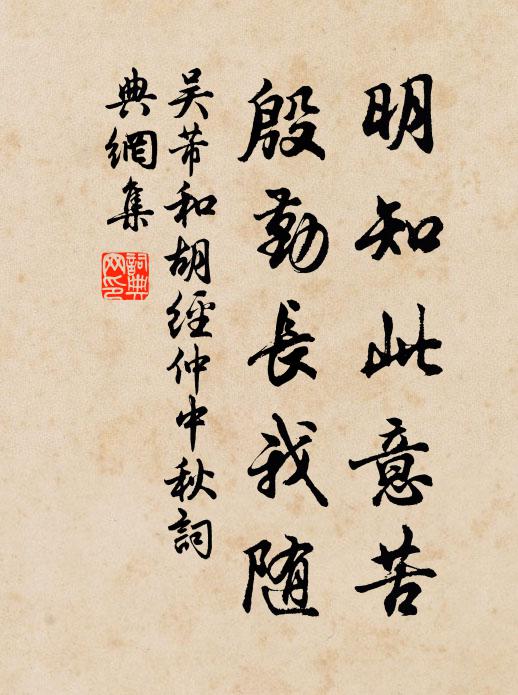 明知此意苦
殷勤長我随
吴芾和胡經仲中秋詞
典網集
詞典網印